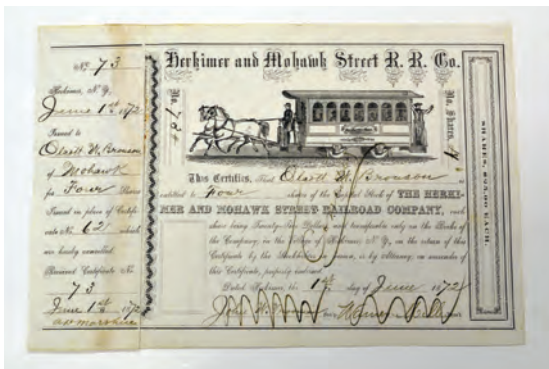 No. 73
Herkimer, N. Y.,
June 1st 1872
Issued to
Olcott M. Bronson
of Mohawk
for Four Shares
Issued in place of Certifi-
cate No. 62 which
are hereby cancelled.
Received Certificate No.
73
June 1st 1872
Herkimer and Mohawk Street R. R. Co.
No. 73
No. Shares, 4
This Certifies, That Olcott M. Bronson is
entitled to Four shares of the Capital Stock of THE HERKI-
MER AND MOHAWK STREET RAILROAD COMPANY, each
share being Twenty-Five Dollars, and transferable only on the Books of
the Company, in the Village of Herkimer, N. Y., on the return of this
Certificate by the Stockholder in person, or by Attorney, on surrender of
this Certificate, properly endorsed.
Dated Herkimer, the 1st day of June 1872
SHARES, $25.00 EACH.